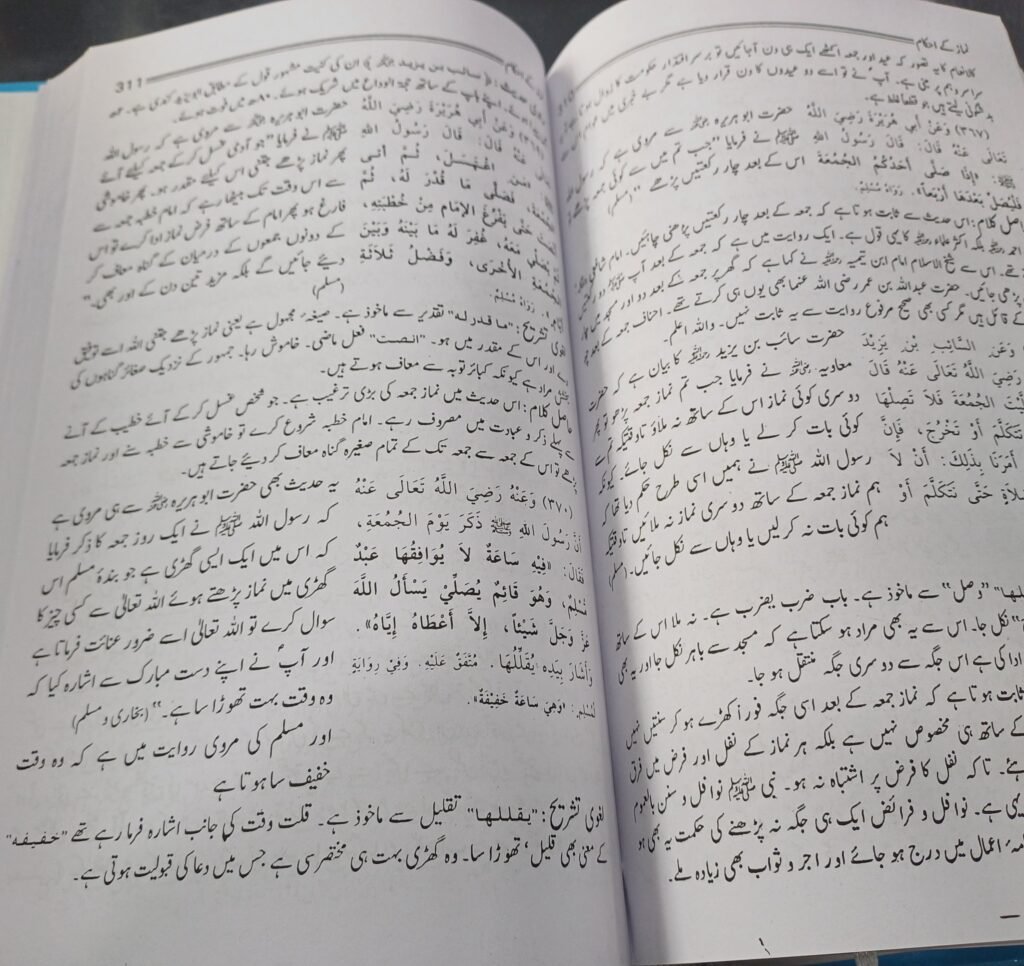 نماز کے احکام
کلام کا یہ تصور کہ عید اور جمعہ اکٹھے ایک ہی دن آ جائیں تو برسر اقتدار حکومت کا زوال ہو
سراسر وہم پرستی ہے۔ آپؐ نے تو اسے دو عیدوں کا دن قرار دیا ہے مگر بے خبری میں عوام
بد شگونی لیتے ہیں جو قطعاً غلط ہے۔
(٣٦٧) وَعَنْ أَبِي هُرَيْرَةَ رَضِيَ اللَّهُ حضرت ابوہریرہ رضی اللہ عنہ سے مروی ہے کہ رسول اللہ
تَعَالَى عَنْهُ قَالَ: قَالَ رَسُولُ اللهِ ﷺ نے فرمایا ”جب تم میں سے کوئی جمعہ پڑھے تو
ﷺ: «إِذَا صَلَّى أَحَدُكُمُ الْجُمُعَةَ اس کے بعد چار رکعتیں پڑھے“ (مسلم)
فَلْيُصَلِّ بَعْدَهَا أَرْبَعاً». رَوَاهُ مُسْلِمٌ.
حاصل کلام: اس حدیث سے ثابت ہوتا ہے کہ جمعہ کے بعد چار رکعتیں پڑھنی چاہئیں۔ امام شافعی
احمد بلکہ اکثر علماء کا یہی قول ہے۔ ایک روایت میں ہے کہ جمعہ کے بعد آپ ﷺ دو رکعتیں
تھے۔ اس سے شیخ الاسلام امام ابن تیمیہ نے کہا ہے کہ گھر پر جمعہ کے بعد دو اور مسجد میں
پڑھی جائیں۔ حضرت عبداللہ بن عمر رضی اللہ عنہما بھی یوں ہی کرتے تھے۔ احناف جمعہ کے بعد
کے قائل ہیں مگر کسی بھی صحیح مرفوع روایت سے یہ ثابت نہیں۔ واللہ اعلم۔
وَعَنِ السَّائِبِ بْنِ يَزِيدَ حضرت سائب بن یزید کا بیان ہے کہ حضرت
رَضِيَ اللَّهُ تَعَالَى عَنْهُ قَالَ معاویہ نے فرمایا جب تم نماز جمعہ پڑھو تو پھر
الْجُمُعَةَ فَلاَ تَصِلْهَا دوسری کوئی نماز اس کے ساتھ نہ ملاؤ تاوقتیکہ تم سے
تَتَكَلَّمَ أَوْ تَخْرُجَ، فَإِنَّ کوئی بات کر لے یا وہاں سے نکل جائے۔ کیونکہ
أَمَرَنَا بِذَلِكَ: أَنْ لاَ رسول اللہ ﷺ نے ہمیں اسی طرح حکم دیا تھا کہ
حَتَّى نَتَكَلَّمَ أَوْ ہم نماز جمعہ کے ساتھ دوسری نماز نہ ملائیں تاوقتیکہ
ہم کوئی بات نہ کر لیں یا وہاں سے نکل جائیں۔ (مسلم)
”وصل“ سے ماخوذ ہے۔ باب ضرب یضرب ہے۔ نہ ملا اس کے ساتھ
نکل جا۔ اس سے یہ بھی مراد ہو سکتا ہے کہ مسجد سے باہر نکل جا اور یہ بھی
ادا کی ہے اس جگہ سے دوسری جگہ منتقل ہو جا۔
ثابت ہوتا ہے کہ نماز جمعہ کے بعد اسی جگہ فوراً کھڑے ہو کر سنتیں نہیں
کے ساتھ ہی مخصوص نہیں ہے بلکہ ہر نماز کے نفل اور فرض میں فرق
تاکہ نفل کا فرض پر اشتباہ نہ ہو۔ نبی ﷺ نوافل و سنن بالعموم
یہی ہے۔ نوافل و فرائض ایک ہی جگہ نہ پڑھنے کی حکمت یہ بھی ہو
اعمال میں درج ہو جائے اور اجر و ثواب بھی زیادہ ملے۔
کے احکام 311
حدیث: ﴿سائب بن یزید﴾ ان کی کنیت مشہور قول کے مطابق ابو یزید کندی ہے۔
ہوئے۔ اپنے باپ کے ساتھ حجۃ الوداع میں شریک ہوئے۔ ۸۰ھ میں فوت ہوئے۔
وَعَنْ أَبِي هُرَيْرَةَ رَضِيَ اللَّهُ حضرت ابوہریرہ سے مروی ہے کہ رسول اللہ
عَنْهُ قَالَ: قَالَ رَسُولُ اللهِ ﷺ نے فرمایا ”جو آدمی غسل کر کے جمعہ کیلئے آئے
«مَنِ اغْتَسَلَ، ثُمَّ أَتَى پھر نماز پڑھے جتنی اس کیلئے مقدور ہو۔ پھر خاموشی
فَصَلَّى مَا قُدِّرَ لَهُ، ثُمَّ سے اس وقت تک بیٹھا رہے کہ امام خطبہ جمعہ سے
حَتَّى يَفْرُغَ الإِمَامُ مِنْ خُطْبَتِهِ، فارغ ہو پھر امام کے ساتھ فرض نماز ادا کرے تو اس
يُصَلِّي مَعَهُ، غُفِرَ لَهُ مَا بَيْنَهُ وَبَيْنَ کے دونوں جمعوں کے درمیان کے گناہ معاف کر
الْجُمُعَةِ الأُخْرَى، وَفَضْلُ ثَلاَثَةِ دیئے جائیں گے بلکہ مزید تین دن کے اور بھی۔“
رَوَاهُ مُسْلِمٌ. (مسلم)
لغوی تشریح: ”ما قدر له“ تقدیر سے ماخوذ ہے۔ صیغہ مجہول ہے یعنی نماز پڑھے جتنی اللہ اسے توفیق
دے اور اس کے مقدر میں ہو۔ ”انصت“ فعل ماضی۔ خاموش رہا۔ جمہور کے نزدیک صغائر گناہوں کی
بخشش مراد ہے کیونکہ کبائر توبہ سے معاف ہوتے ہیں۔
حاصل کلام: اس حدیث میں نماز جمعہ کی بڑی ترغیب ہے۔ جو شخص غسل کر کے آئے خطیب کے آنے
سے پہلے ذکر و عبادت میں مصروف رہے۔ امام خطبہ شروع کرے تو خاموشی سے خطبہ سنے اور نماز جمعہ
پڑھے تو اس کے جمعہ سے جمعہ تک کے تمام صغیرہ گناہ معاف کر دیئے جاتے ہیں۔
(٣٧٠) وَعَنْهُ رَضِيَ اللَّهُ تَعَالَى عَنْهُ یہ حدیث بھی حضرت ابوہریرہ سے ہی مروی ہے
أَنَّ رَسُولَ اللهِ ﷺ ذَكَرَ يَوْمَ الْجُمُعَةِ، کہ رسول اللہ ﷺ نے ایک روز جمعہ کا ذکر فرمایا
فَقَالَ: «فِيهِ سَاعَةٌ لاَ يُوَافِقُهَا عَبْدٌ کہ اس میں ایک ایسی گھڑی ہے جو بندۂ مسلم اس
مُسْلِمٌ، وَهُوَ قَائِمٌ يُصَلِّي يَسْأَلُ اللَّهَ گھڑی میں نماز پڑھتے ہوئے اللہ تعالیٰ سے کسی چیز کا
عَزَّ وَجَلَّ شَيْئاً، إِلاَّ أَعْطَاهُ إِيَّاهُ». سوال کرے تو اللہ تعالیٰ اسے ضرور عنائت فرماتا ہے
وَأَشَارَ بِيَدِهِ يُقَلِّلُهَا. مُتَّفَقٌ عَلَيْهِ. وَفِي رِوَايَةٍ اور آپؐ نے اپنے دست مبارک سے اشارہ کیا کہ
لِمُسْلِمٍ: «وَهِيَ سَاعَةٌ خَفِيفَةٌ». وہ وقت بہت تھوڑا سا ہے۔“ (بخاری و مسلم)
اور مسلم کی مروی روایت میں ہے کہ وہ وقت
خفیف سا ہوتا ہے
لغوی تشریح: ”یقللها“ تقلیل سے ماخوذ ہے۔ قلت وقت کی جانب اشارہ فرما رہے تھے ”خفیفه“
کے معنی بھی قلیل‘ تھوڑا سا۔ وہ گھڑی بہت ہی مختصر سی ہے جس میں دعا کی قبولیت ہوتی ہے۔